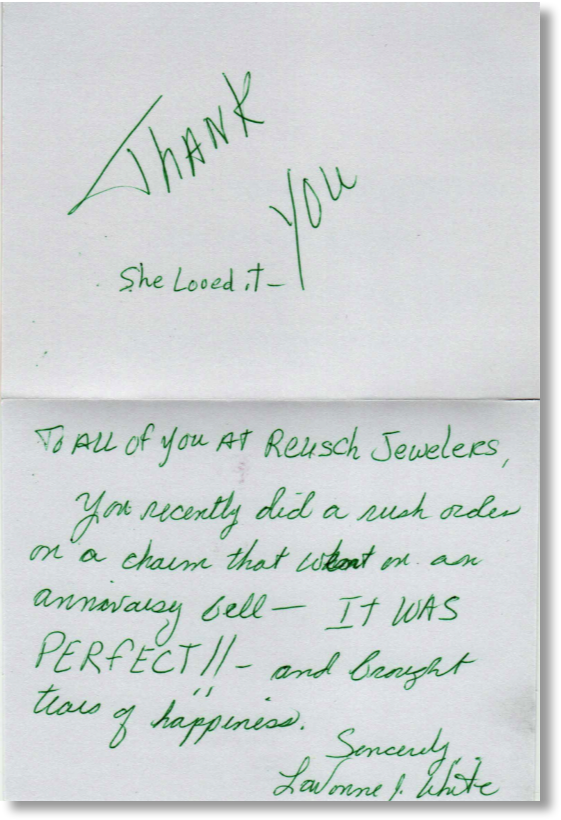 THANK
YOU
She Looed it –
To All of You At Reusch Jewelers,
You recently did a rush order
on a charm that went on an
annivarsy bell — It WAS
PERFECT!! – and brought
tears of happiness.
Sencerely,
LaVonne J. White